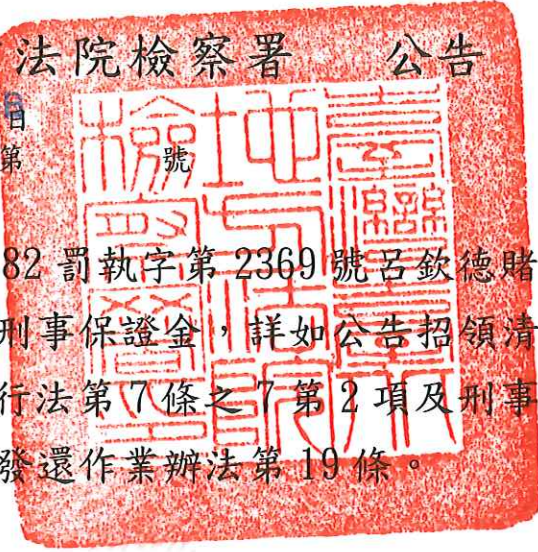 法院檢察署 公告
日
第 號
82 罰執字第 2369 號呂欽德賭
刑事保證金，詳如公告招領清
行法第 7 條之 7 第 2 項及刑事
發還作業辦法第 19 條。